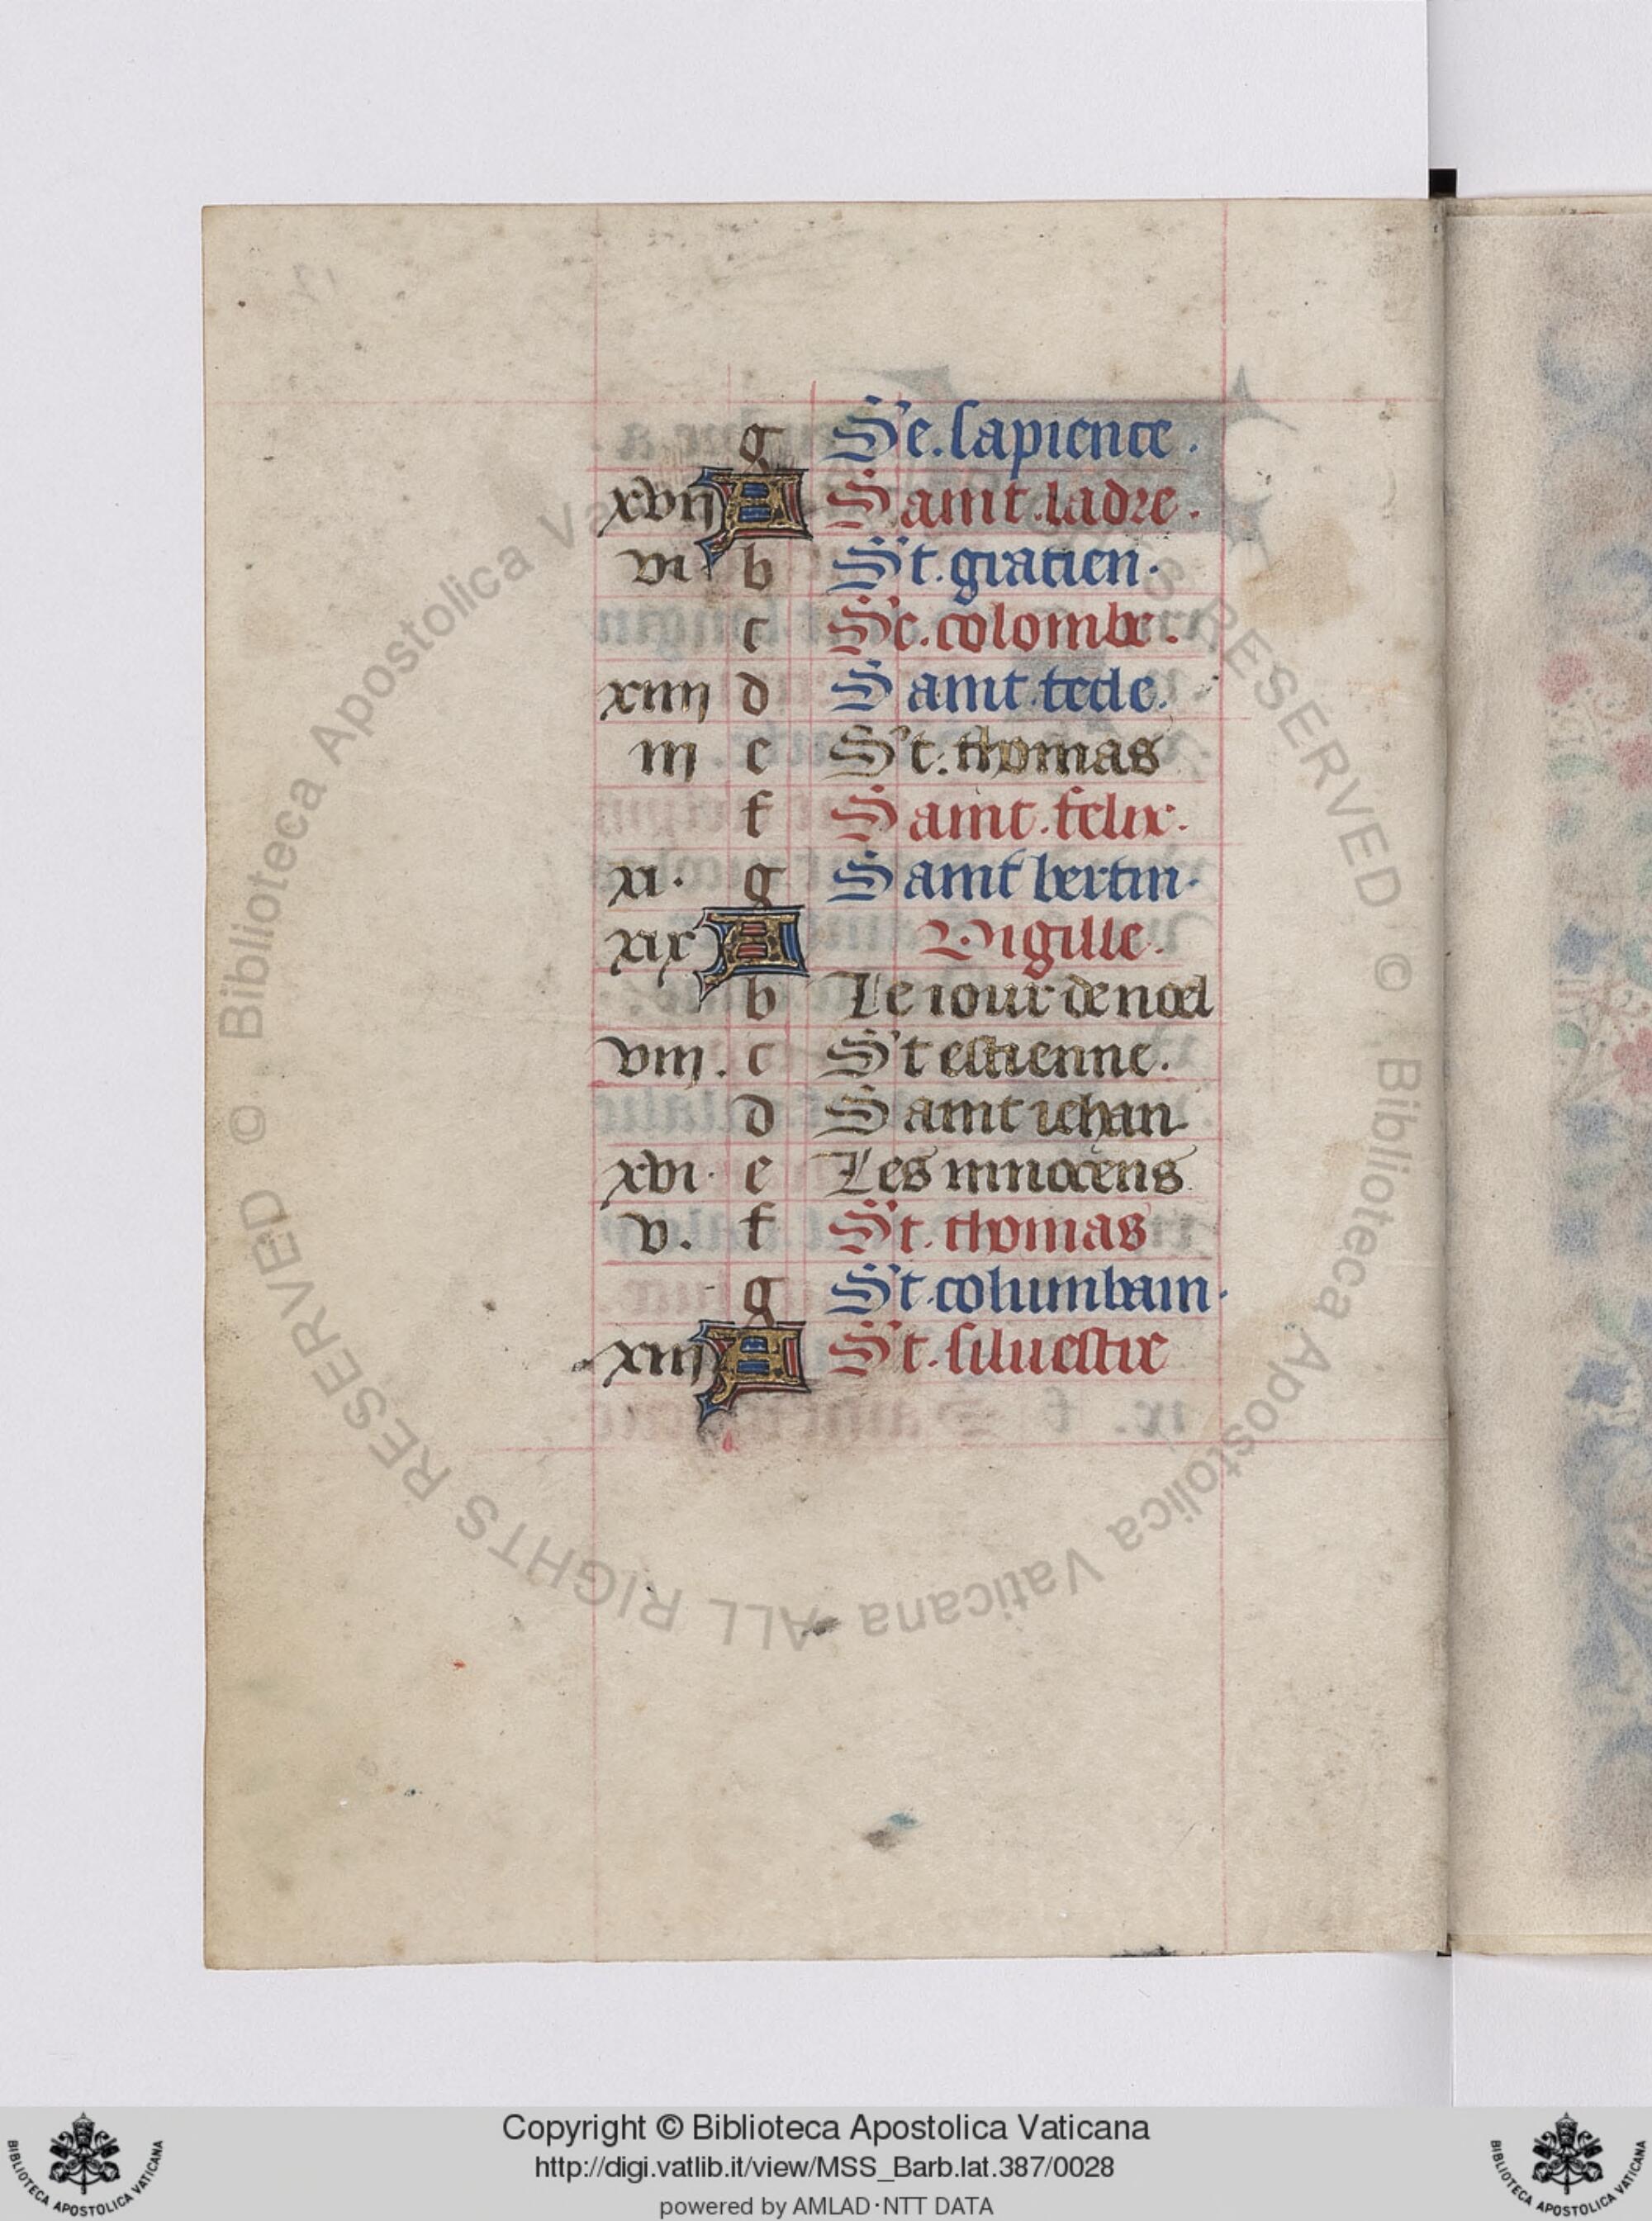 g Se. sapience.
xvij A Saint. ladre.
vi b St. gratien.
c Se. colombe.
xiiij d Saint. tecle.
iij e St. thomas
f Saint. felix.
xi. g Saint bertin.
xix A Vigille.
b Le iour de noel
viij. c St estienne.
d Saint iehan
xvi. e Les innocens
v. f St. thomas
g St. columbain.
xiij A St. siluestre
© Biblioteca Apostolica Vaticana ALL RIGHTS RESERVED © Biblioteca Apostolica Vaticana ALL RIGHTS RESERVED
Copyright © Biblioteca Apostolica Vaticana
http://digi.vatlib.it/view/MSS_Barb.lat.387/0028
powered by AMLAD·NTT DATA
BIBLIOTECA APOSTOLICA VATICANA
BIBLIOTECA APOSTOLICA VATICANA